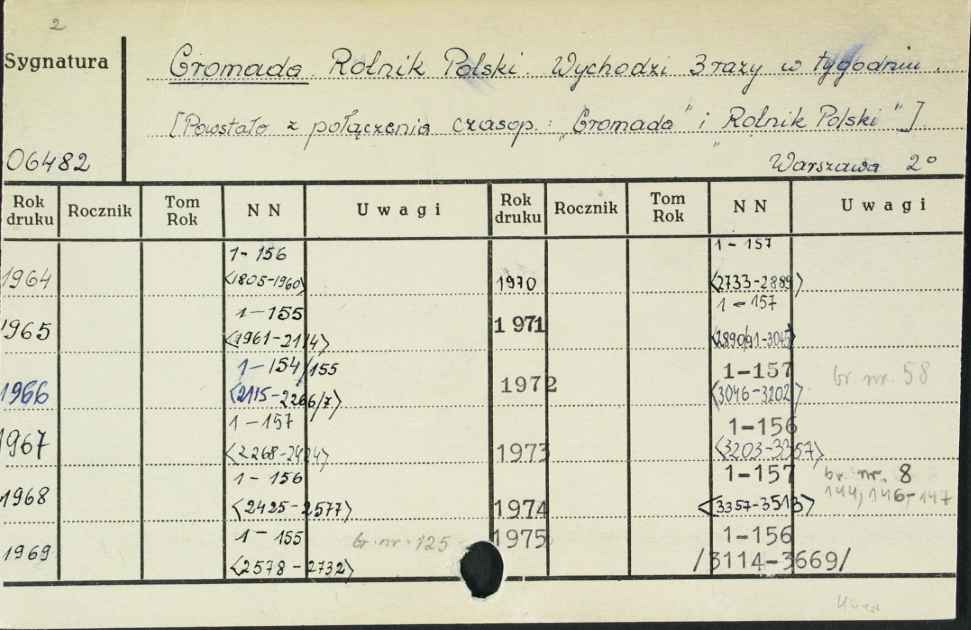 2
Sygnatura
Gromada. Rolnik Polski. Wychodzi 3 razy w tygodniu.
[Powstało z połączenia czasop.: „Gromada" i „Rolnik Polski"].
06482
Warszawa 2°
Rok druku Rocznik Tom Rok NN Uwagi Rok druku Rocznik Tom Rok NN Uwagi
1964 1-156 <1805-1960> 1970 1-157 <2733-2889>
1965 1-155 <1961-2114> 1971 1-157 <2890/91-3045>
1966 1-154/155 <2115-2266/7> 1972 1-157 <3046-3202> br nr. 58
1967 1-157 <2268-2424> 1973 1-156 <3203-3357>
1968 1-156 <2425-2577> 1974 1-157 <3357-3513> br. nr. 8 144, 146-147
1969 1-155 <2578-2732> br. nr. 125 1975 1-156 /3114-3669/